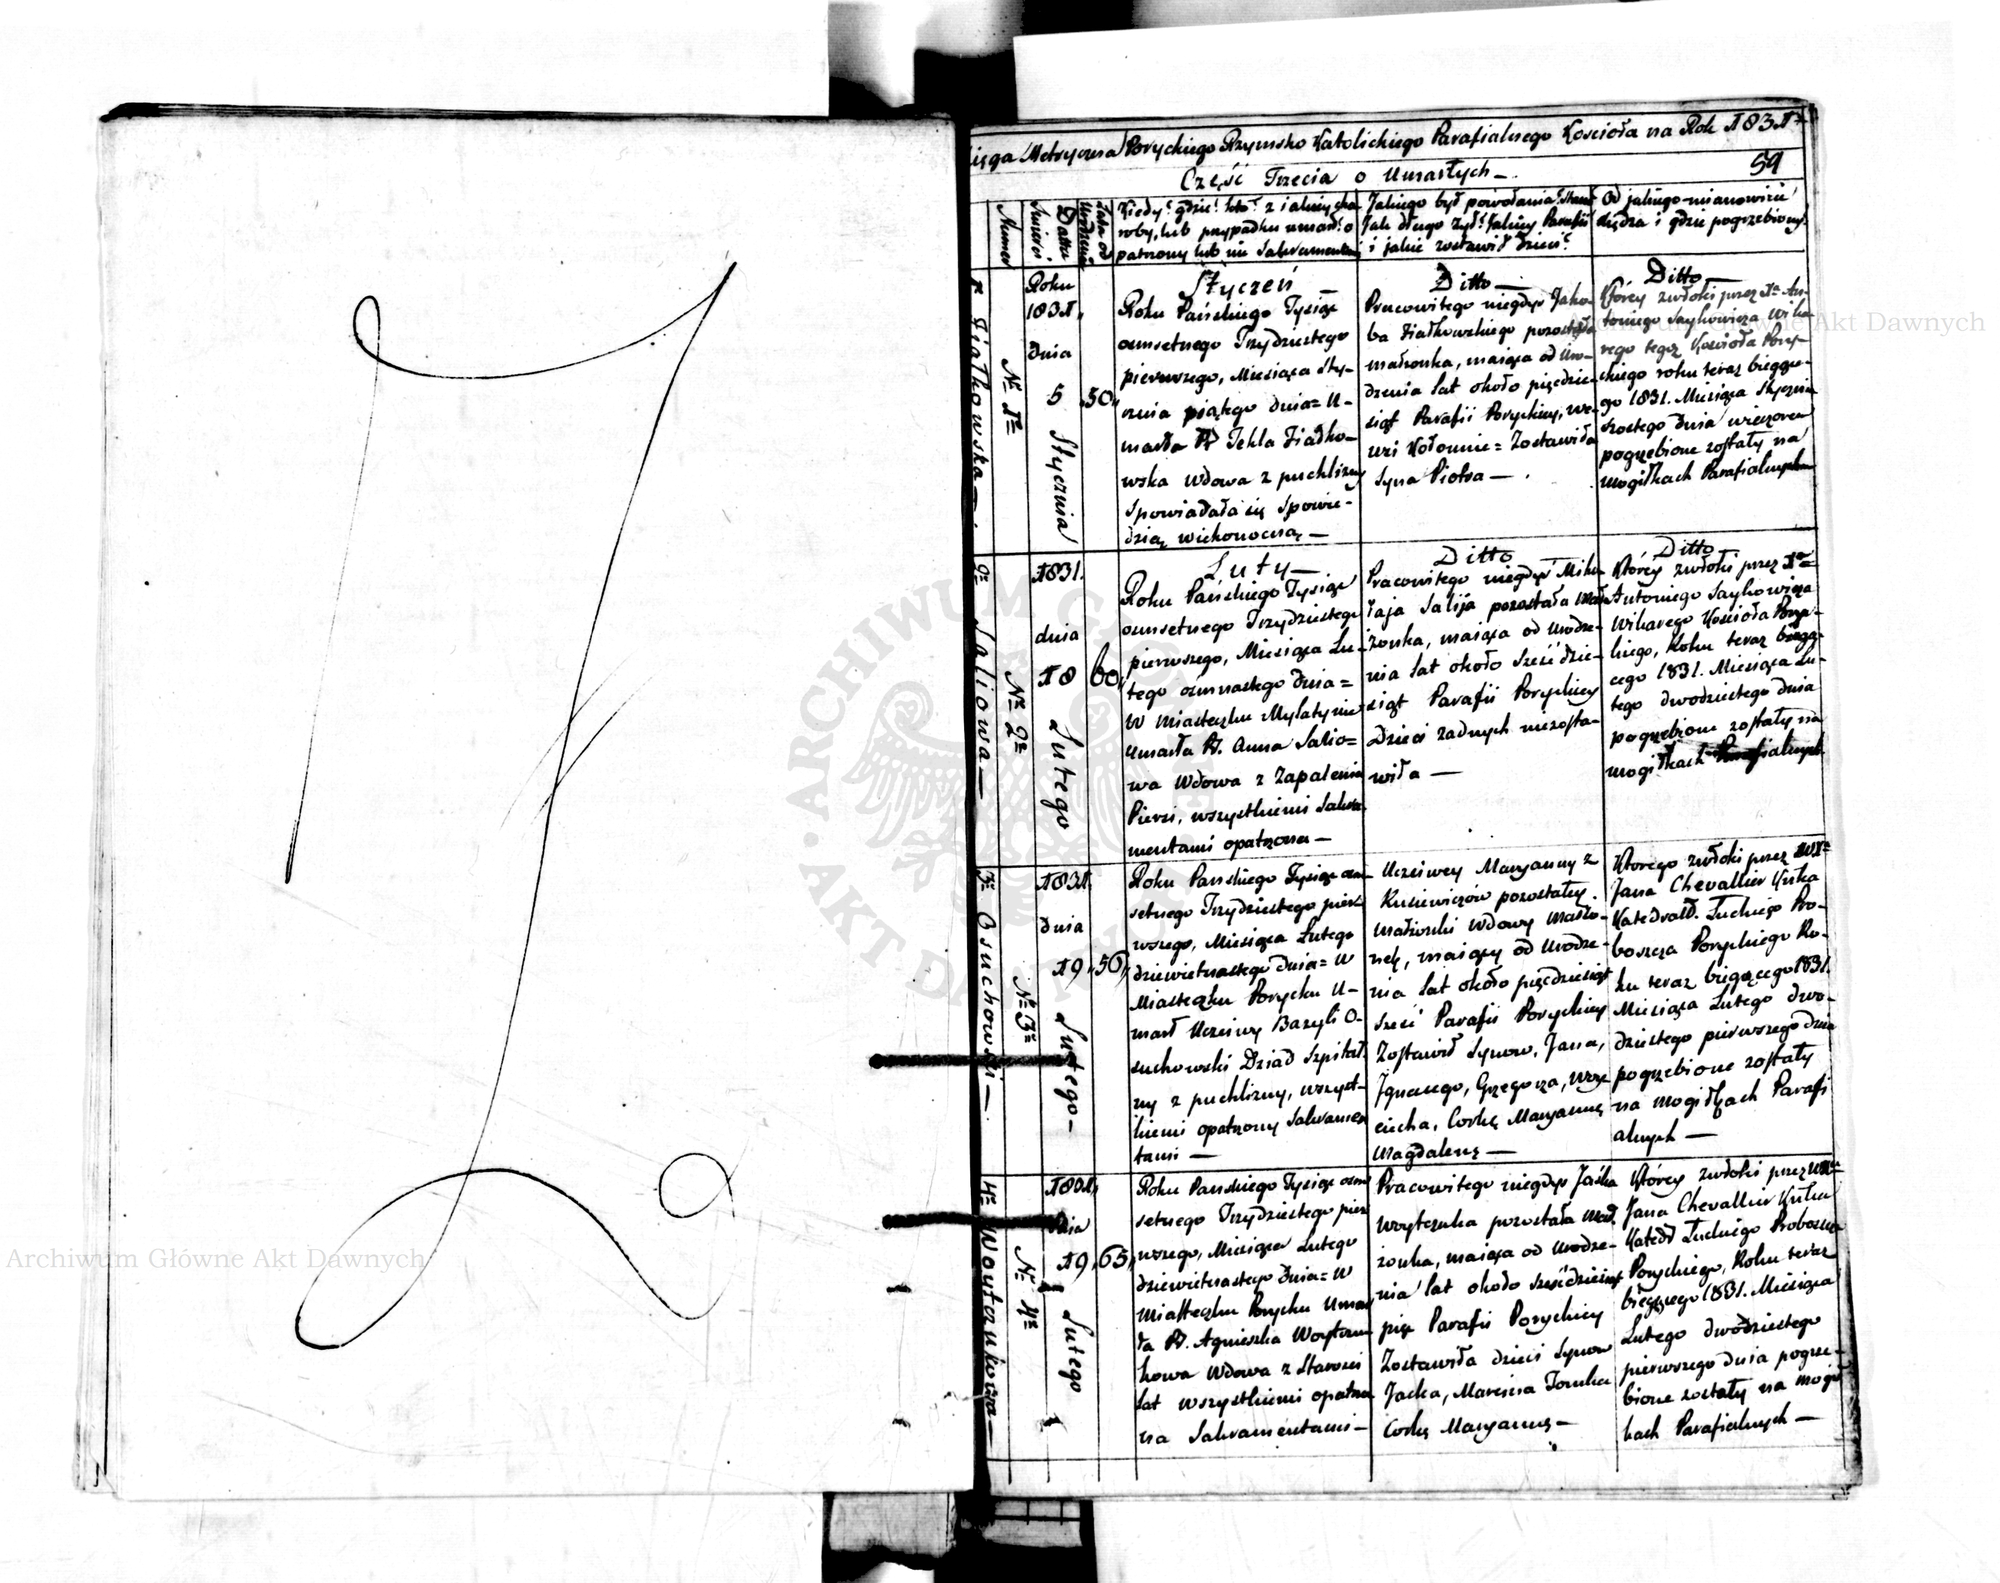 ięga Metryczna Poryckiego Rzymsko Katolickiego Parafialnego Kościoła na Rok 1831.
59
Część Trzecia o Umarłych —
Numer
Śmierci
Datta
Lata od Urodzenia
Kiedy? gdzie? kto? z iakiey cho
roby, lub przypadku umarł? o
patrzony lub nie Sakramentami
Jakiego był powołania? Stanu
Jak długo żył? Jakiey Parafii
i jakie zostawił dzieci?
Od jakiego mianowicie
Xiędza i gdzie pogrzebiony?
Ziatkowska —
N. 1
Roku
1831.
dnia
5
Stycznia
50
Styczeń —
Roku Pańskiego Tysiąc
osmsetnego Trzydziestego
pierwszego, Miesiąca Sty-
cznia piątego dnia = u-
marła Tekla Ziatko-
wska Wdowa z puchliny
Spowiadała się Spowie-
dzią wielkonocną —
Ditto —
Pracowitego niegdyś Jako-
ba Ziatkowskiego pozostała
małżonka, maiąca od uro-
dzenia lat około pięćdzie-
siąt Parafii Poryckiey, we
wsi Kołomnie = Zostawiła
Syna Piotra —
Ditto —
Którey zwłoki przez X. An-
toniego Saykowicza Wika-
rego tegoż Kościoła Pory-
ckiego roku teraz bieżące-
go 1831. Miesiąca Stycznia
szóstego dnia wieczorem
pogrzebione zostały na
mogiłkach Parafialnych
2 Saliowa —
N. 2
1831.
dnia
18
Lutego
60
Luty —
Roku Pańskiego Tysiąc
osmsetnego Trzydziestego
pierwszego, Miesiąca Lu-
tego osmnastego dnia =
W miasteczku Mylatynie
umarła Anna Salio=
wa Wdowa z Zapalenia
Piersi, wszystkiemi Sakra-
mentami opatrzona —
Ditto
Pracowitego niegdyś Miko
łaja Salija pozostała mał
żonka, maiąca od urodze-
nia lat około sześćdzie-
siąt Parafii Poryckiey
Dzieci żadnych niezosta-
wiła —
Ditto
Którey zwłoki przez X.
Antoniego Saykowicza
Wikarego Kościoła Pory-
ckiego, Roku teraz bieżą-
cego 1831. Miesiąca Lu-
tego dwudziestego dnia
pogrzebione zostały na
mogiłkach Parafialnych
3 Osuchowski —
N. 3
1831.
dnia
19
Lutego —
56
Roku Pańskiego Tysiąc osm-
setnego Trzydziestego pier
wszego, Miesiąca Lutego
dziewietnastego dnia = W
Miasteczku Porycku u-
marł Uczciwy Bazyli O-
suchowski Dziad Szpital.
ny z puchliny, wszyst-
kiemi opatrzony Sakramen
tami —
Uczciwey Maryanny z
Kusiewiczów pozostałey
małżonki Wdowy
maiący od urodze-
nia lat około pięćdziesiąt
sześć Parafii Poryckiey
Zostawił Synow, Jana,
Ignacego, Grzegorza, Woy
ciecha, Corkę Maryannę
Magdalenę —
Ktorego zwłoki przez
Jana Chevallier
Katedrall. Łuckiego Pro-
boszcza Poryckiego Ro-
ku teraz bieżącego 1831.
Miesiąca Lutego dwu-
dziestego pierwszego dnia
pogrzebione zostały
na mogiłkach Parafi
alnych —
4 Woytczukowa —
N. 4
1831.
dnia
19
Lutego
65
Roku Pańskiego Tysiąc osm
setnego Trzydziestego pier
wszego, Miesiąca Lutego
dziewietnastego dnia = W
Miasteczku Porycku umar
ła Agnieszka Woytczu
kowa Wdowa z Starości
lat wszystkiemi opatrzo
na Sakramentami —
Pracowitego niegdyś Jaśka
Woytczuka pozostała mał
żonka, maiąca od urodze-
nia lat około sześćdziesiąt
pięć Parafii Poryckiey
Zostawiła dzieci Synow
Jacka, Marcina Tomka
Corkę Maryannę —
Którey zwłoki przez
Jana Chevallier
Katedr Łuckiego Proboszcza
Poryckiego, Roku teraz
bieżącego 1831. Miesiąca
Lutego dwudziestego
pierwszego dnia pogrze-
bione zostały na mogił
kach Parafialnych —
Archiwum Główne Akt Dawnych
Archiwum Główne Akt Dawnych
ARCHIWUM GŁÓWNE AKT DAWNYCH